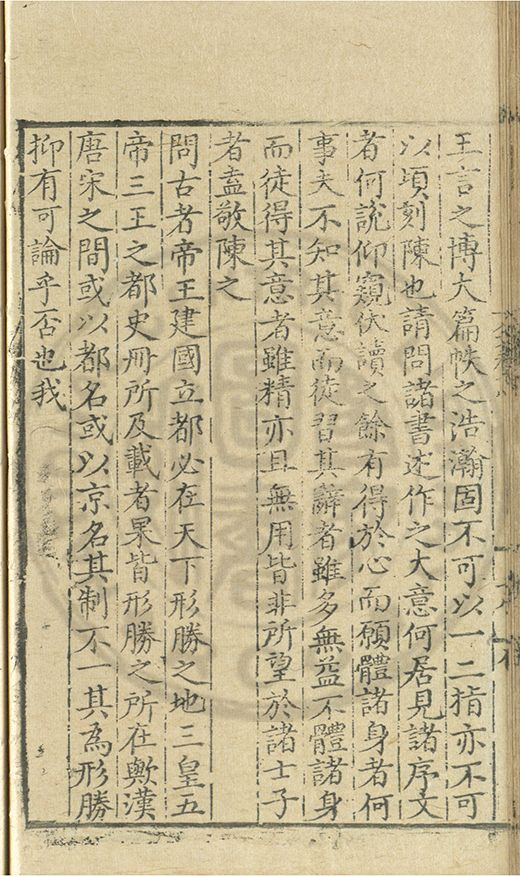 王言之博大篇帙之浩瀚固不可以一二指亦不可
以頃刻陳也請問諸書述作之大意何居見諸序文
者何說仰窺伏讀之餘有得於心而願體諸身者何
事夫不知其意而徒習其辭者雖多無益不體諸身
而徒得其意者雖精亦且無用皆非所望於諸士子
者盍敬陳之
問古者帝王建國立都必在天下形勝之地三皇五
帝三王之都史冊所及載者果皆形勝之所在歟漢
唐宋之間或以都名或以京名其制不一其為形勝
抑有可論乎否也我